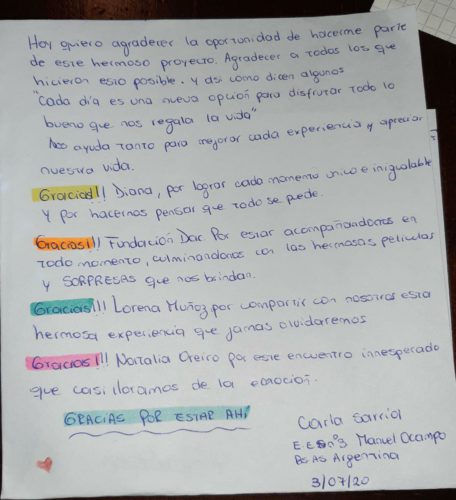 Hoy quiero agradecer la oportunidad de hacerme parte
de este hermoso proyecto. Agradecer a todos los que
hicieron esto posible. y asi como dicen algunos
"Cada día es una nueva opción para disfrutar todo lo
bueno que nos regala la vida"
Nos ayuda tanto para mejorar cada experiencia y apreciar
nuestra vida.
Gracias!!! Diana, por lograr cada momento unico e inigualable
y por hacernos pensar que todo se puede.
Gracias!!! Fundación Dar. Por estar acompañandonos en
todo momento, culminandonos con las hermosas peliculas
y SORPRESAS que nos brindan.
Gracias!!! Lorena Muñoz por compartir con nosotros esta
hermosa experiencia que jamas olvidaremos
Gracias!!! Natalia Oreiro por este encuentro inesperado
que casi lloramos de la emoción.
GRACIAS POR ESTAR AHÍ
Carla Sarriol
E.E.S nº3 Manuel Ocampo
BS AS Argentina
3/07/20